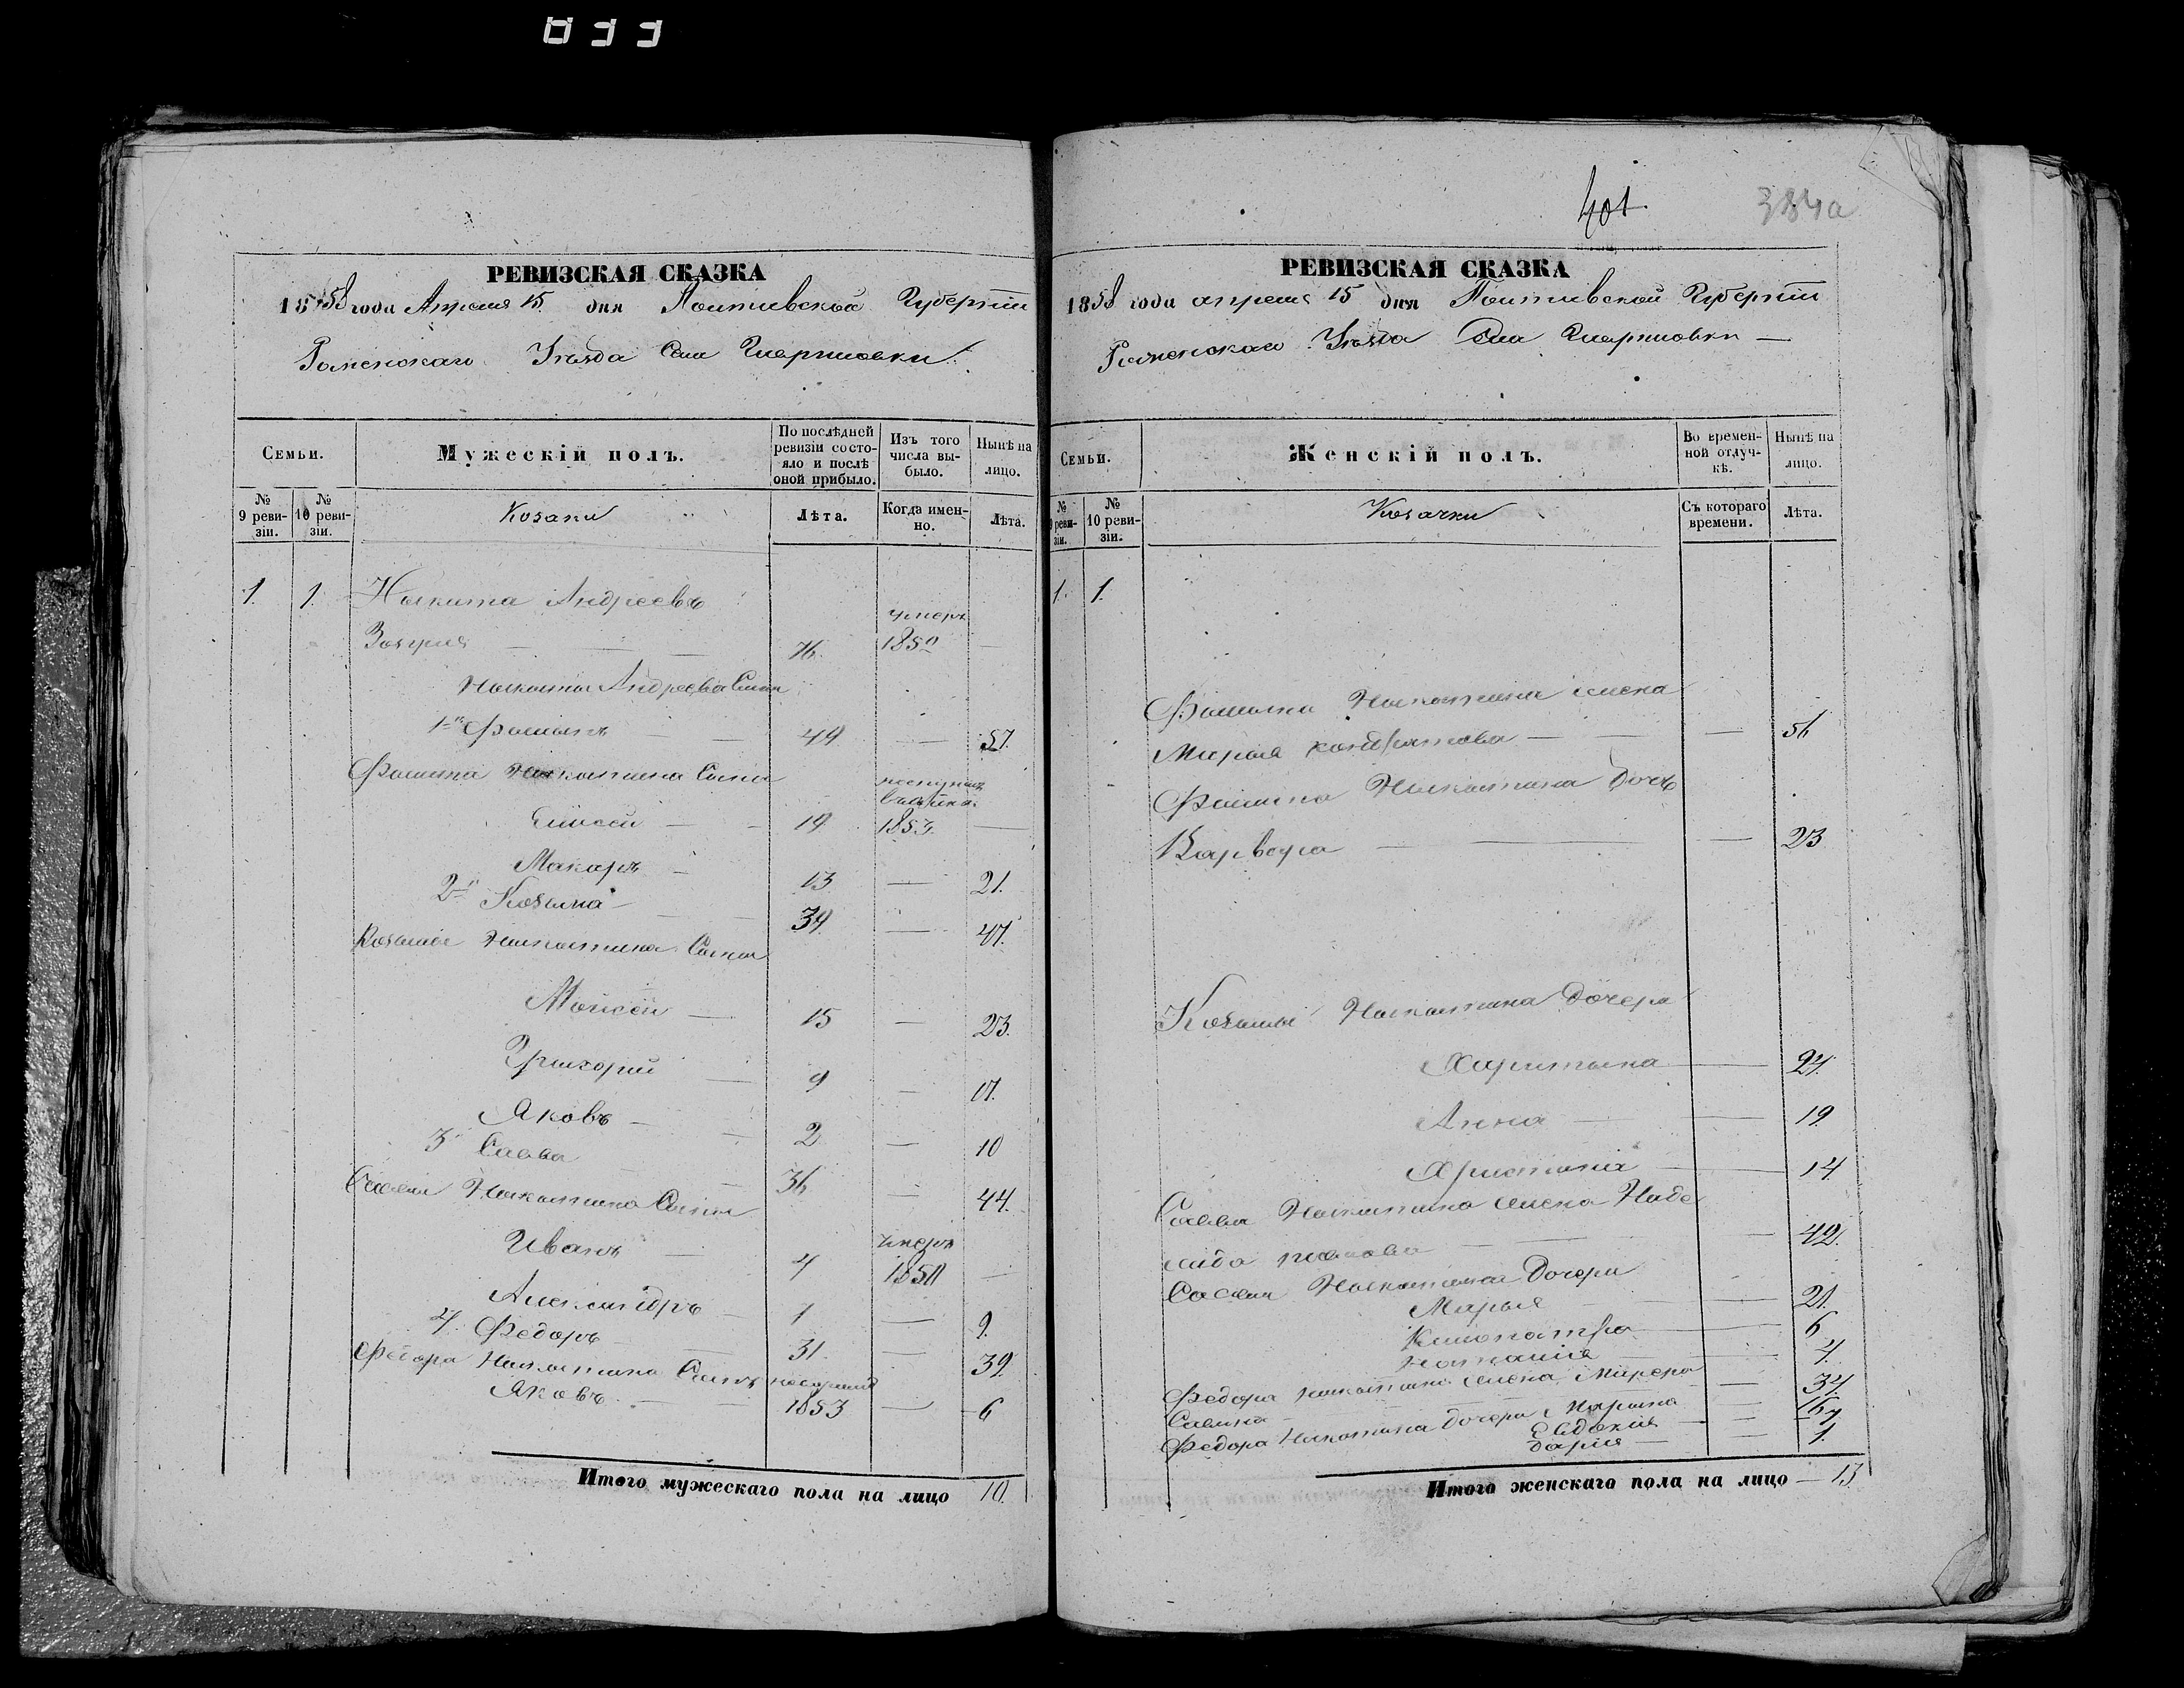 033
РЕВИЗСКАЯ СКАЗКА
1858 года Апреля 15 дня Полтавской Губернiи
Роменскаго Уѣзда Села
Семьи.
Мужескiй полъ.
По послѣдней ревизiи состояло и послѣ оной прибыло.
Изъ того числа выбыло.
Нынѣ на лицо.
№ 9 ревизiи.
№ 10 ревизiи.
Козаки
Лѣта.
Когда именно.
Лѣта.
1. 1. Никита Андреевъ
умеръ
76. 1850 —
Никиты Андреева Сыны
1й Фома 49 — 57.
Никитина Сыны
поступил
Елисей — 19 1853 —
Макаръ — 13 — 21.
2й Козьма — 39 — 47.
Козьмы Никитина Сыны
Мойсей — 15 — 23.
Григорий — 9 — 17.
Яковъ — 2 — 10
3й Савва 36 — 44.
Саввы Никитина Сыны
Иванъ — 4 умеръ 1850 —
Александръ — 1 — 9.
4. Федоръ — 31. — 39.
Федора Никитина Сынъ
Яковъ. — 1853 — 6
Итого мужескаго пола на лицо 10.
401.
384а
РЕВИЗСКАЯ СКАЗКА
1858 года апреля 15 дня Полтавской Губернiи
Роменскаго Уѣзда Села
Семьи.
Женскiй полъ.
Во временной отлучкѣ.
Нынѣ на лицо.
№ 9 ревизiи.
№ 10 ревизiи.
Козачки
Съ котораго времени.
Лѣта.
1. 1.
Никитина жена
Марья Кондратова — — 56
Никитина Дочь
Варвара — — 23
Козьмы Никитина Дочери
Харитина — 24.
Анна — — 19
Христинiа — 14
Саввы Никитина жена Наде
жда — — 42.
Саввы Никитина Дочери
Марья — — 21.
Клеопатра — 6
Наталiя — 4.
Федора Никитина жена — 34.
Савина
Федора Никитина Дочери Марина — 16
Евдокiя — 7
Дарiя — — 1.
Итого женскаго пола на лицо — 13